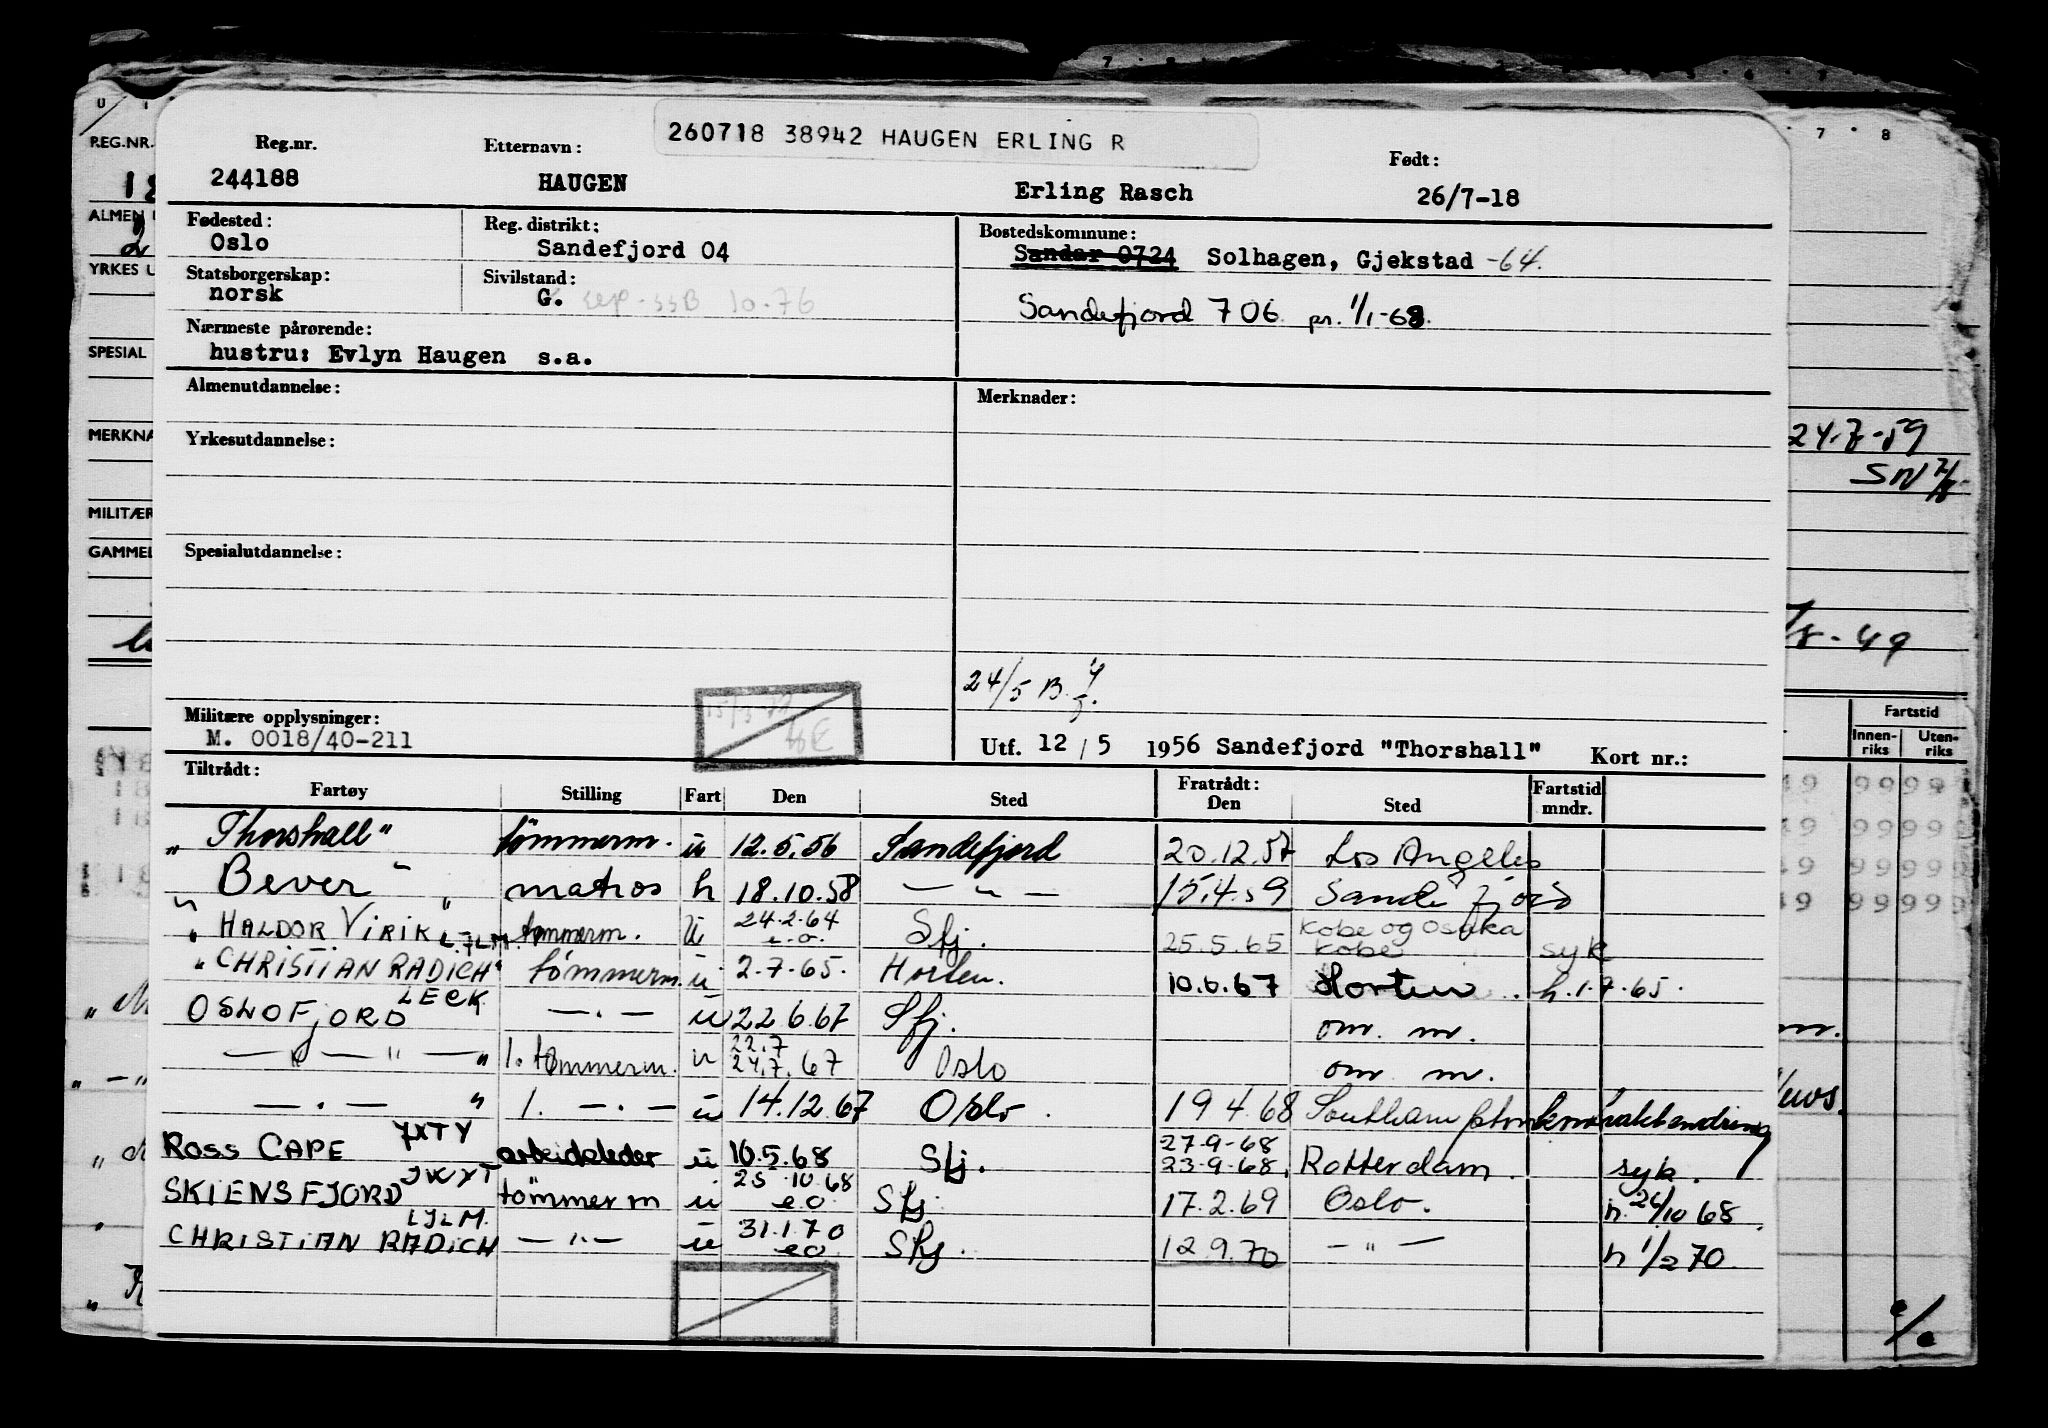 260718 38942 HAUGEN ERLING R
Reg.nr. Etternavn: Født:
244188 HAUGEN Erling Rasch 26/7-18
Fødested: Reg. distrikt: Bostedskommune:
Oslo Sandefjord 04 Sandar 0724 Solhagen, Gjekstad -64.
Statsborgerskap: Sivilstand:
norsk G. sep-ssB 10-76 Sandefjord 706 pr. 1/1-68
Nærmeste pårørende:
hustru: Evlyn Haugen s.a.
Almenutdannelse: Merknader:
Yrkesutdannelse:
Spesialutdannelse:
24/5 B.
Militære opplysninger:
M. 0018/40-211
Utf. 12/5 1956 Sandefjord "Thorshall" Kort nr.:
Tiltrådt: Fratrådt:
Fartøy Stilling Fart Den Sted Den Sted Fartstid mndr.
"Thorshall" tömmerm. u 12.5.56 Sandefjord 20.12.57 Los Angeles
" Bever " matros h 18.10.58 — " — 15.4.59 Sandefjord
" HALDOR VIRIK " LJLM tømmerm. u 24.2.64 e.o. Sfj. 25.5.65 Kobe og Osaka Kobe syk
" CHRISTIAN RADICH " tömmerm. u 2.7.65. Horten. 10.6.67 Horten h.1.7.65.
OSLOFJORD LECK — . — u 22 6.67 Sfj. om. m.
— " — " — " 1. tømmerm. u 22.7 24.7.67 Oslo om m.
— . — " 1. — . — u 14.12.67 Oslo. 19 4.68 Southampton
ROSS CAPE JXTY arbeidsleder u 10.5.68 Sfj. 27-9-68 23-9-68, Rotterdam. syk.
SKIENSFJORD JWYT tömmerm u 25.10.68 eo Sfj 17.2.69 Oslo. h. 24/10 68.
CHRISTIAN RADICH LJLM. — " — u 31.1.70 eo Sfj. 12.9.70 — " — h 1/2 70.
REG.NR.
YRKES U
SPESIAL
MERKNA
MILITÆR
GAMMEL
24-7-59
Fartstid
Innen-riks Uten-riks